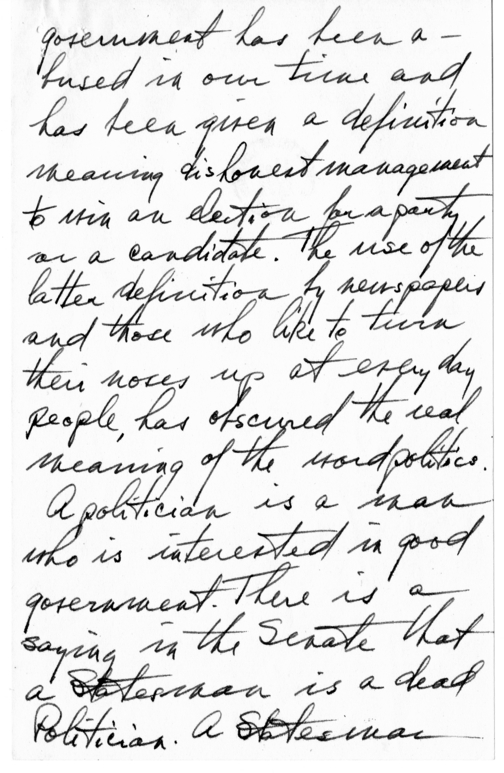 government has been a-
bused in our time and
has been given a definition
meaning dishonest management
to win an election for a party
or a candidate. The use of the
latter definition by newspapers
and those who like to turn
their noses up at every day
people, has obscured the real
meaning of the word politics.
A politician is a man
who is interested in good
government. There is a
saying in the Senate that
a Statesman is a dead
Politician. A Statesman